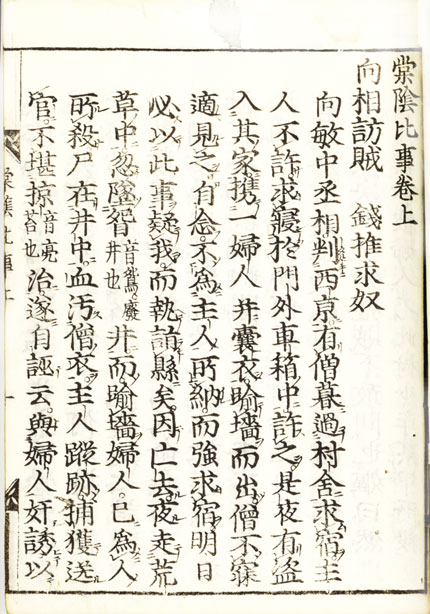 棠陰比事卷上
向相訪賊　錢推求奴
向敏中丞相判西京有僧暮過村舍求宿主
人不許求寢於門外車箱中許之是夜有盜
入其家携一婦人并囊衣踰墻而出僧不寐
適見之自念不為主人所納而強求宿明日
必以此事疑我而執詣縣矣因亡去夜走荒
草中忽墜眢音鴛廢井也井而踰墻婦人已為人
所殺尸在井中血汚僧衣主人蹤跡捕獲送
官不堪掠音亮笞也治遂自誣云與婦人奸誘以
棠陰比事上　一